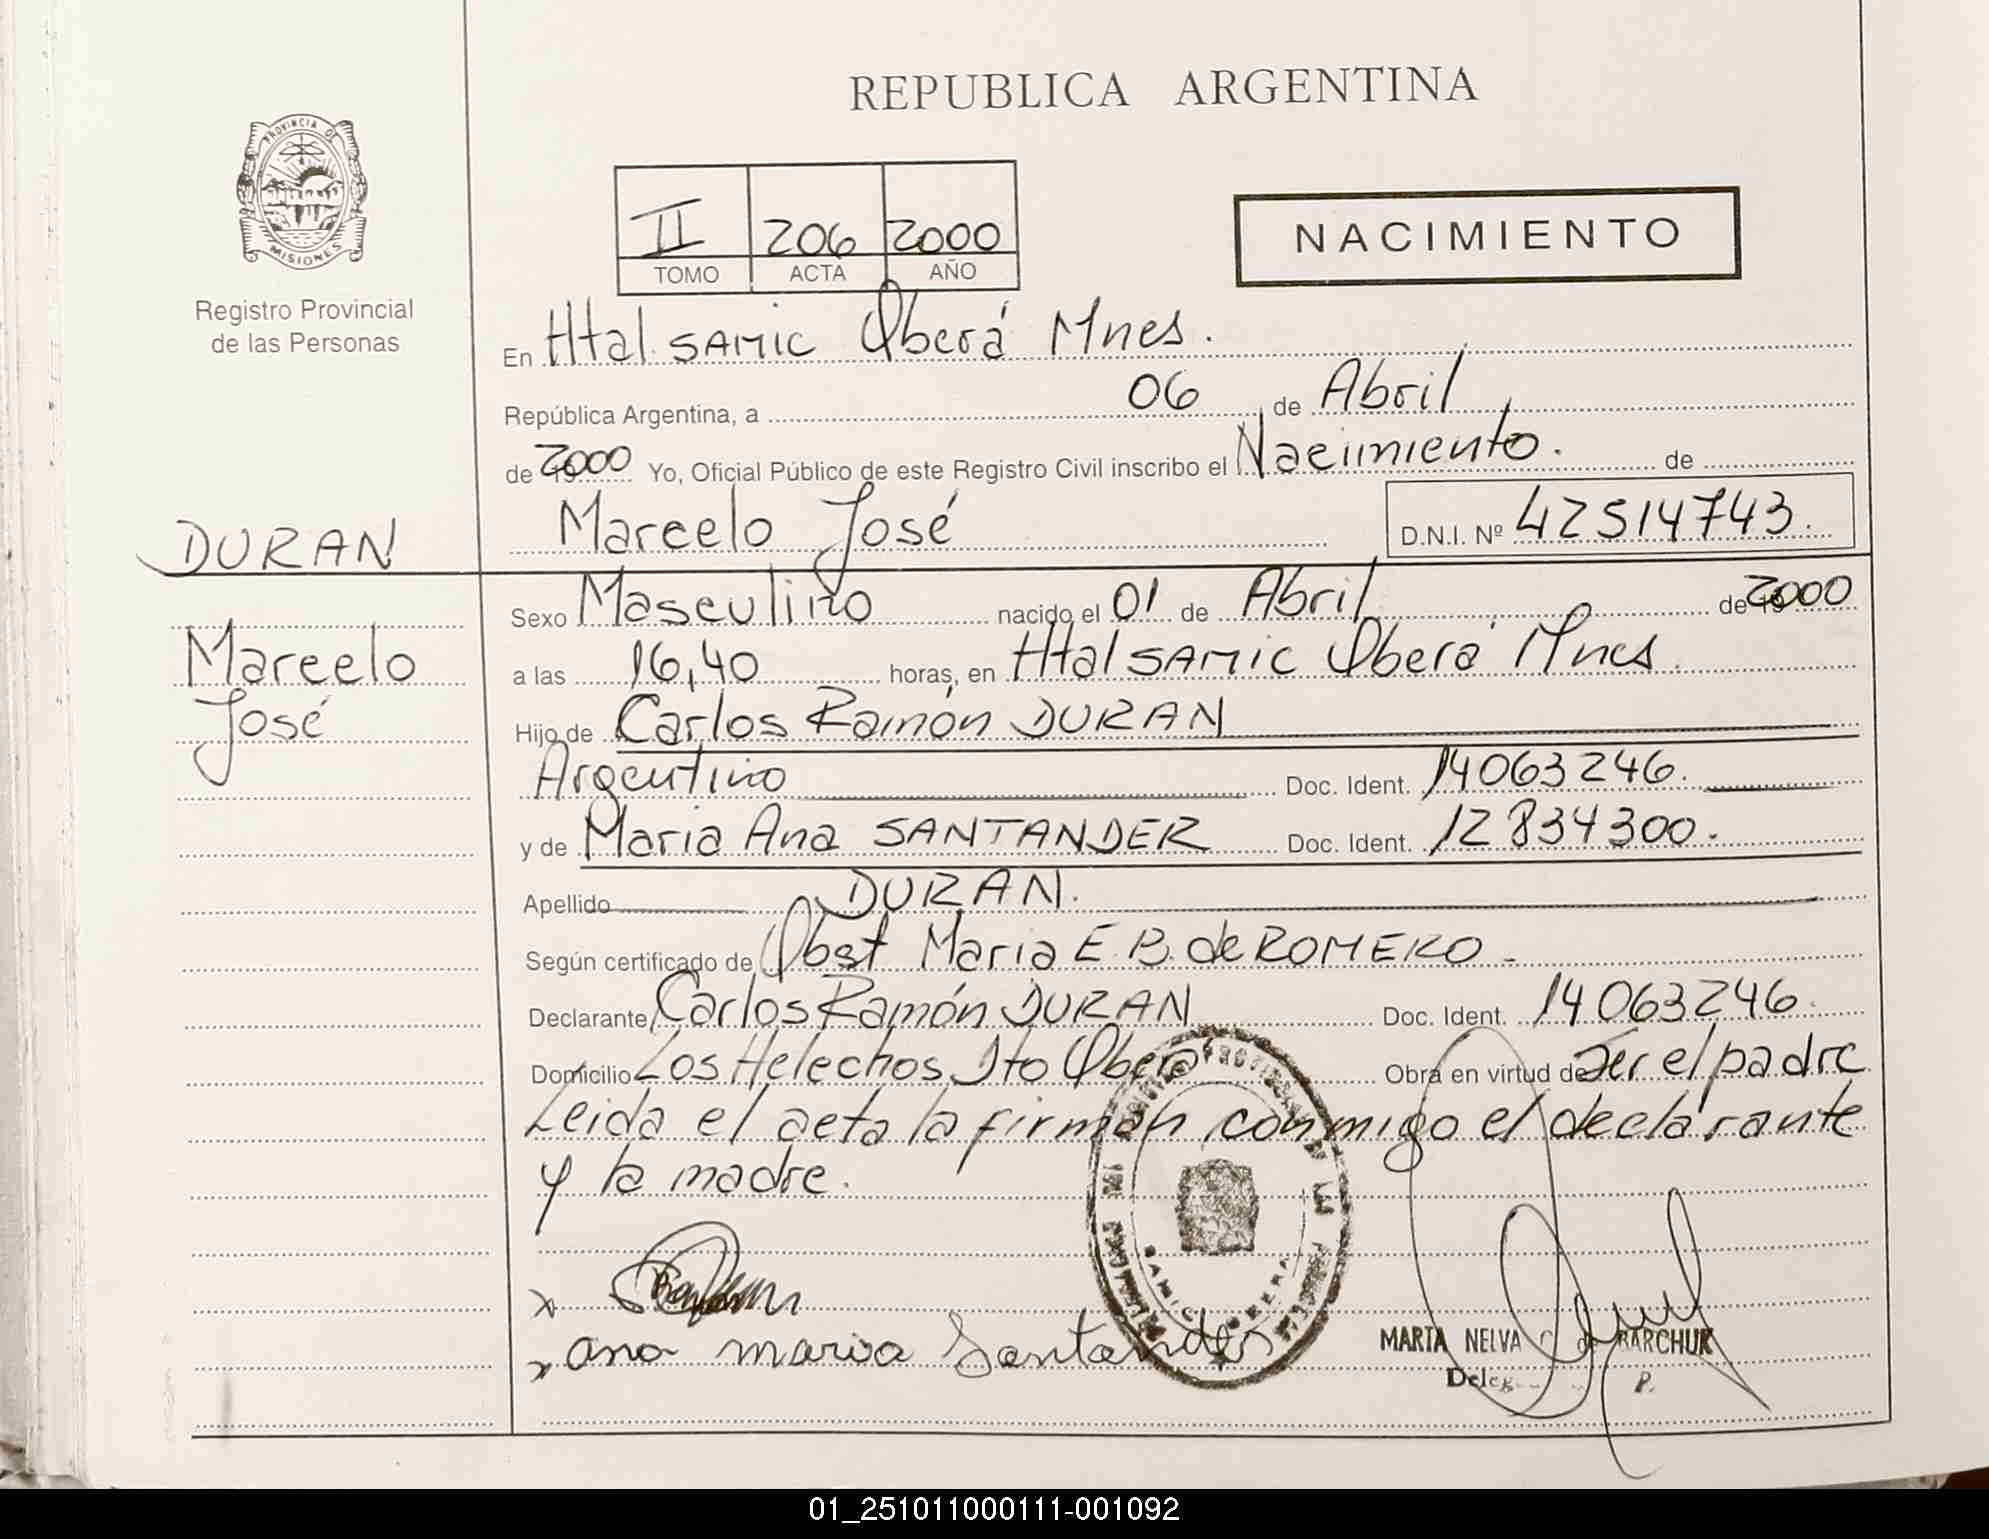 REPUBLICA ARGENTINA
PROVINCIA DE
MISIONES
Registro Provincial
de las Personas
II 206 2000
TOMO ACTA AÑO
NACIMIENTO
En Htal SAMIC Oberá Mnes.
República Argentina, a 06 de Abril
de 2000 Yo, Oficial Público de este Registro Civil inscribo el Nacimiento. de
DURAN
Marcelo José
D.N.I. Nº 42514743.
Marcelo
José
Sexo Masculino nacido el 01 de Abril de 2000
a las 16,40 horas, en Htal SAMIC Oberá Mnes.
Hijo de Carlos Ramón DURAN
Argentino Doc. Ident. 14063246.
y de Maria Ana SANTANDER Doc. Ident. 12834300.
Apellido DURAN.
Según certificado de Obst Maria E. B. de ROMERO
Declarante Carlos Ramón DURAN Doc. Ident. 14063246.
Domicilio Los Helechos Dto Oberá Obra en virtud de Ser el padre
Leida el acta la firman conmigo el declarante
y la madre.
x
x ana maria Santander
SAMIC OBERA
MARTA NELVA C. de BARCHUK
01_251011000111-001092